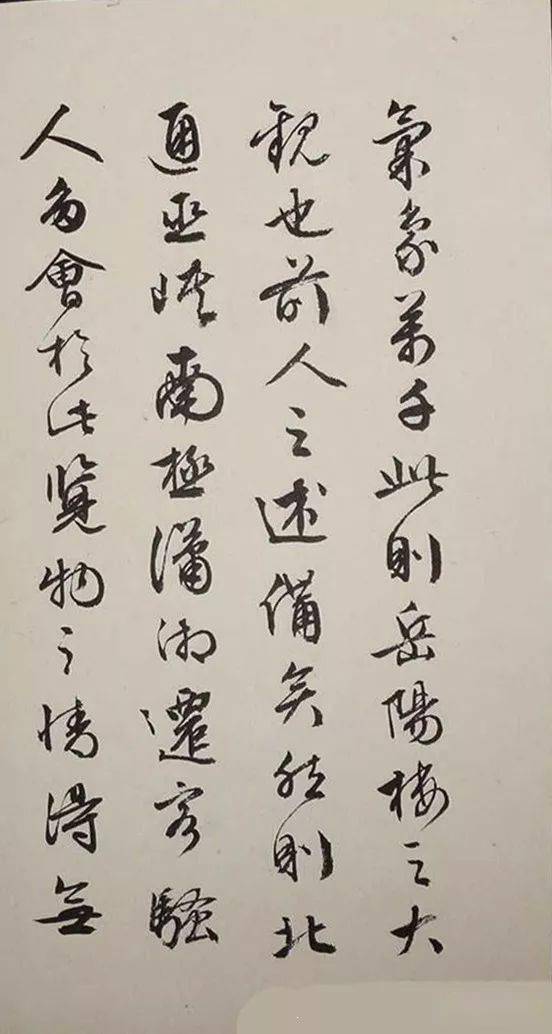 氣象萬千此則岳陽樓之大
觀也前人之述備矣然則北
通巫峽南極瀟湘遷客騷
人多會於此覽物之情得無